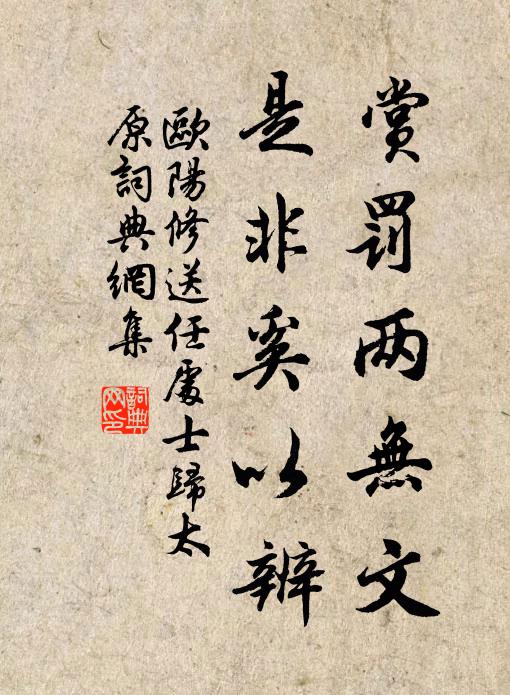 賞罰两無文
是非奚以辨
歐陽修送任處士歸太
原詞典網集
詞典
网印